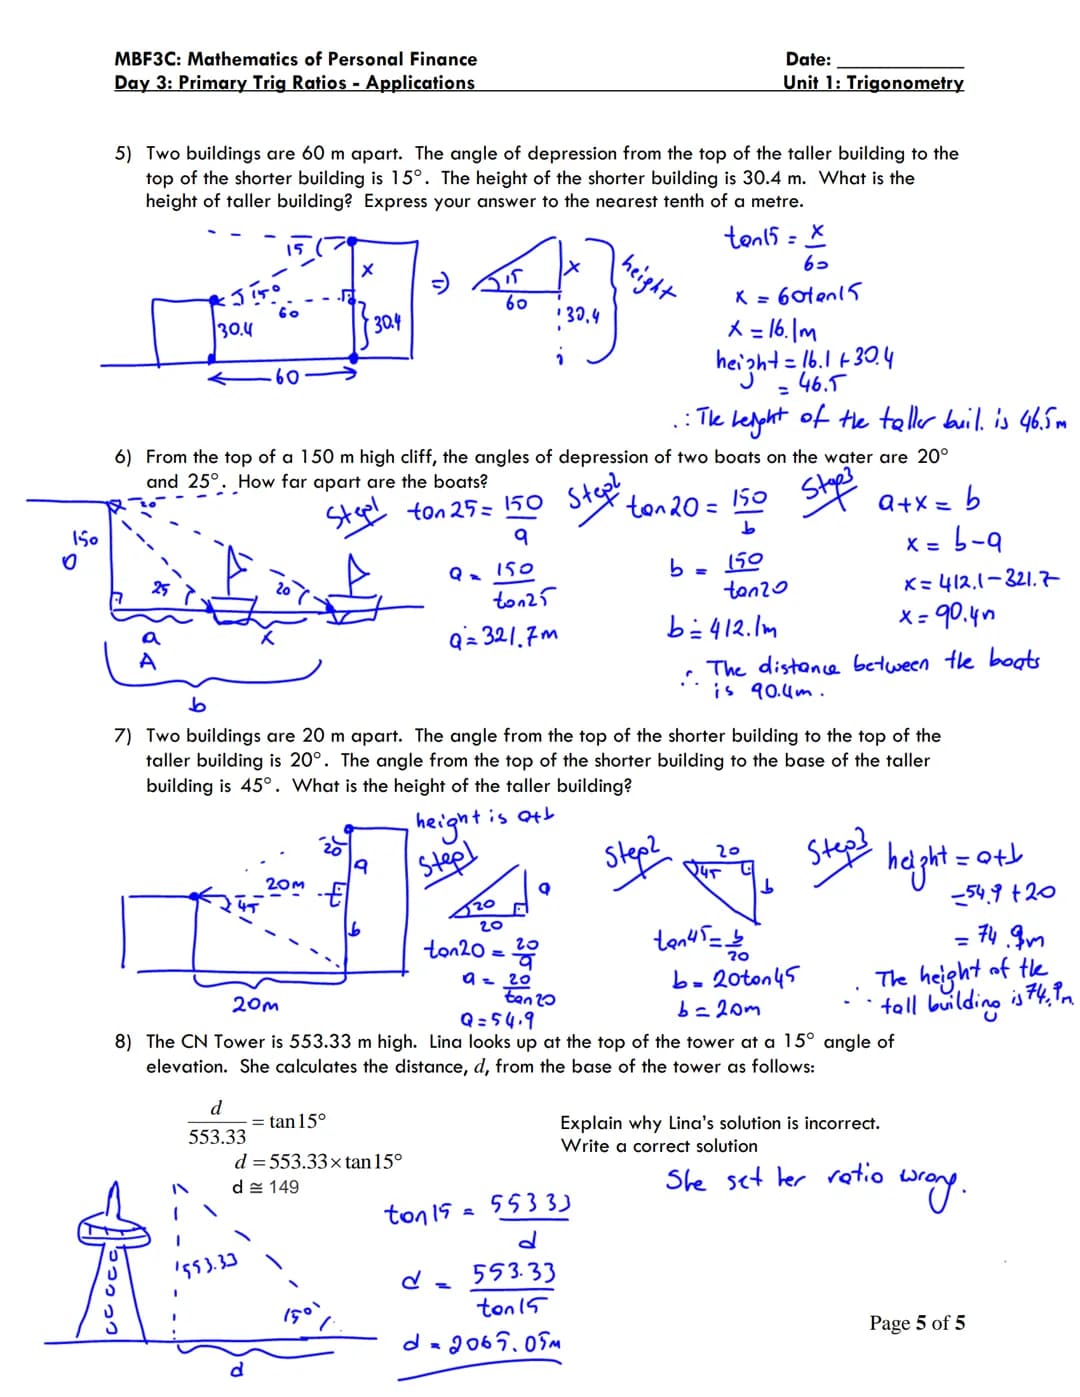 MBF3C: Mathematics of Personal Finance
Date: ____________
Day 3: Primary Trig Ratios - Applications
Unit 1: Trigonometry
5) Two buildings are 60 m apart. The angle of depression from the top of the taller building to the
top of the shorter building is 15°. The height of the shorter building is 30.4 m. What is the
height of taller building? Express your answer to the nearest tenth of a metre.
15
x
15°
60
30.4
30.4
60
⇒
15
x
60
30.4
height
tan15 = x/60
x = 60tan15
x = 16.1m
height = 16.1 + 30.4
= 46.5
∴ The height of the taller buil. is 46.5m
6) From the top of a 150 m high cliff, the angles of depression of two boats on the water are 20°
and 25°. How far apart are the boats?
20
150
25
20
a
x
A
b
Step1
tan25 = 150/a
a = 150/tan25
a = 321.7m
Step2
tan20 = 150/b
b = 150/tan20
b = 412.1m
Step3
a+x = b
x = b-a
x = 412.1-321.7
x = 90.4m
∴ The distance between the boats
is 90.4m.
7) Two buildings are 20 m apart. The angle from the top of the shorter building to the top of the
taller building is 20°. The angle from the top of the shorter building to the base of the taller
building is 45°. What is the height of the taller building?
20
a
20m
45
b
20m
height is a+b
Step1
20
a
20
tan20 = 20/a
a = 20/tan20
a = 54.9
Step2
20
45
b
tan45 = b/20
b = 20tan45
b = 20m
Step3
height = a+b
= 54.9 + 20
= 74.9m
∴ The height of the
tall building is 74.9m
8) The CN Tower is 553.33 m high. Lina looks up at the top of the tower at a 15° angle of
elevation. She calculates the distance, d, from the base of the tower as follows:
d/553.33 = tan15°
d = 553.33 × tan15°
d ≅ 149
Explain why Lina's solution is incorrect.
Write a correct solution
She set her ratio wrong.
553.33
15°
d
tan15 = 553.33/d
d = 553.33/tan15
d = 2065.05m
Page 5 of 5